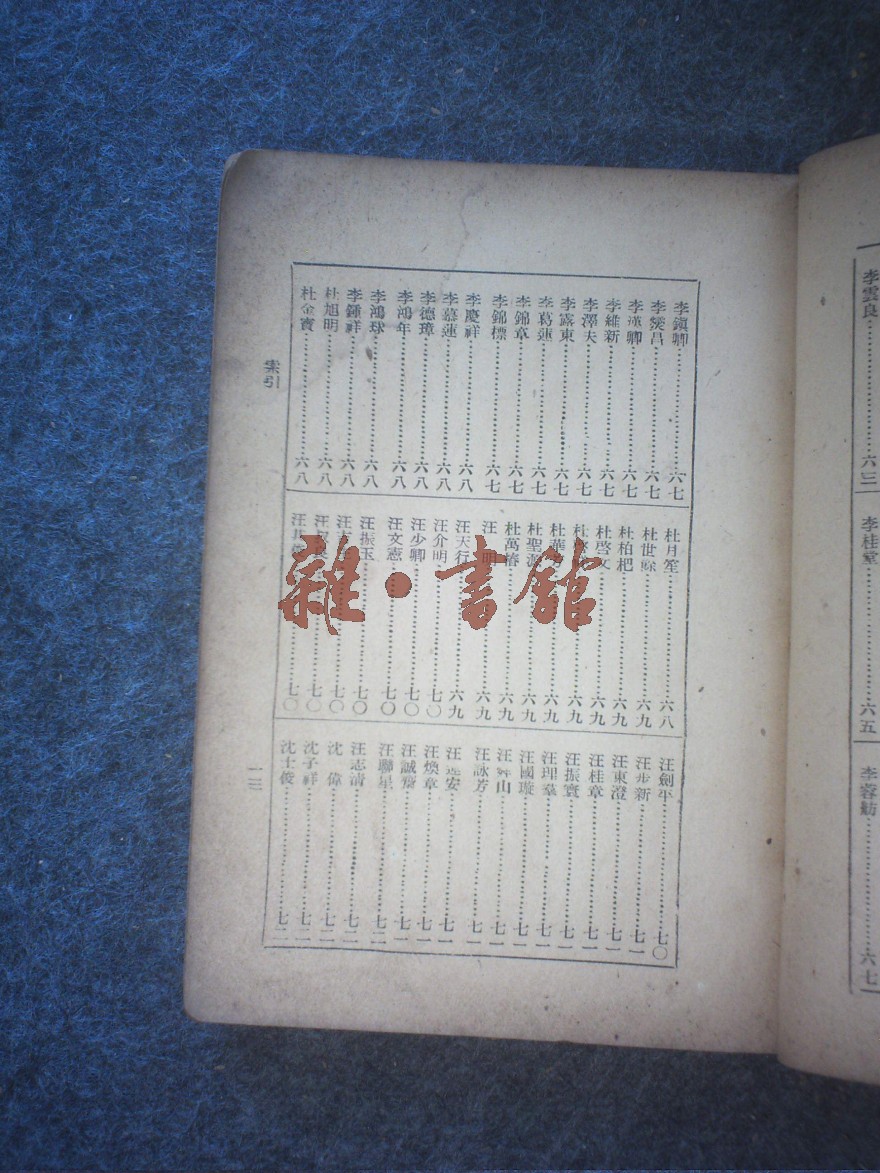 李鎭卿……六七
李燮昌……六七
李漢卿……六七
李維新……六七
李澤夫……六七
李露東……六七
李葛蓮……六七
李錦章……六七
李錦標……六七
李慶祥……六八
李慕蓮……六八
李德璋……六八
李鴻年……六八
李鴻球……六八
李鍾祥……六八
杜旭明……六八
杜金寶……六八
杜月笙……六八
杜世……六九
杜柏杷……六九
杜啓文……六九
杜……六九
杜華……六九
杜聖……六九
杜萬椿……六九
汪　明……六九
汪天行……六九
汪介明……七〇
汪少卿……七〇
汪文憲……七〇
汪振玉……七〇
汪……七〇
汪……七〇
汪……七〇
汪劍平……七〇
汪……新……七一
汪東澄……七一
汪桂章……七一
汪振寰……七一
汪理……七一
汪國璇……七一
汪……山……七一
汪詠芳……七一
汪……安……七一
汪煥章……七一
汪誠齋……七一
汪聯星……七二
汪志清……七二
沈　偉……七二
沈子祥……七二
沈士俊……七二
索引
一三
李雲良……六三
李桂堂……六五
李蓉舫……六七
雜·書館